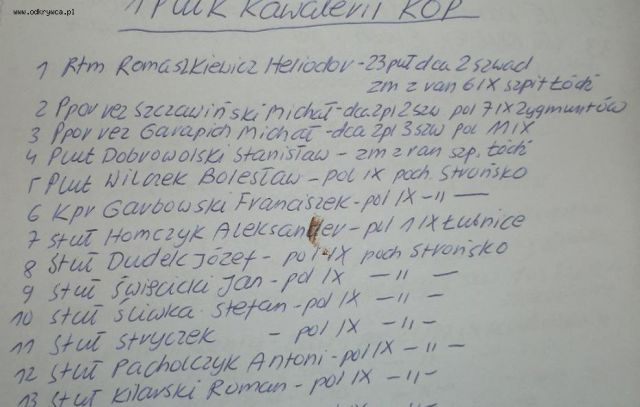 www.odkrywca.pl
1 Pułk Kawalerii KOP
1 Rtm Romaszkiewicz Heliodor - 23 puł dca 2 szwad
zm z ran 6 IX szpit Łódź
2 Ppor rez Szczawiński Michał - dca 2 pl 2 szw pol 7 IX Zygmuntów
3 Ppor rez Garapich Michał - dca 2 pl 3 szw pol 11 IX
4 Plut Dobrowolski Stanisław - zm z ran szp. Łódź
5 Plut Wilczek Bolesław - pol IX poch. Strońsko
6 Kpr Garbowski Franciszek - pol IX - 11 -
7 St uł Homczyk Aleksander - pol 1 IX Łubnice
8 St uł Dudek Józef - pol IX poch Strońsko
9 St uł Święcicki Jan - pol IX - 11 -
10 St uł Śliwka Stefan - pol IX - 11 -
11 St uł Stryczek - pol IX - 11 -
12 St uł Pacholczyk Antoni - pol IX - 11 -
13 St uł Kilarski Roman - pol IX - 11 -